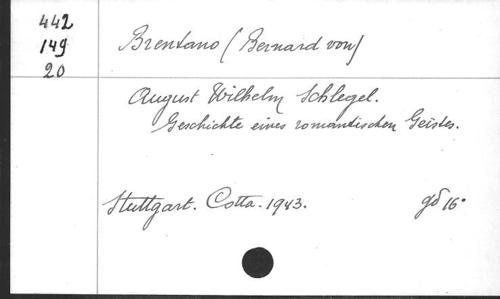 442
149
20
Brentano (Bernard von)
August Wilhelm Schlegel.
Geschichte eines romantischen Geistes.
Stuttgart. Cotta. 1943. gd 16°